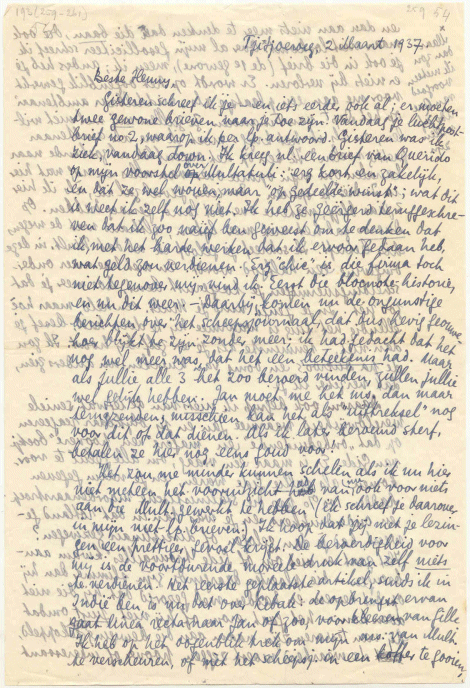 Tjitjoeroeg, 2 Maart 1937.
Beste Henny,
Gisteren schreef ik je en iets eerder ook al; er moeten
twee gewone brieven naar je toe zijn. Vandaag je luchtpost-
brief no. 2, waarop ik per l.p. antwoord. Gisteren was ik
ziek, vandaag down. Ik kreeg nl. een brief van Querido
op mijn voorstel over Multatuli: erg kort en zakelijk,
en dat ze wel wouen, maar "op gedeelde winst"; wat dit
is weet ik zelf nog niet. Ik heb ze geërgerd teruggeschre-
ven dat ik zoo naief ben geweest om te denken dat
ik met het harde werken dat ik ervoor gedaan heb,
wat geld zou verdienen. Erg "chic" is die firma toch
niet tegenover mij, vind ik. Eerst die blocnote-historie,
en nu dit weer. – Daarbij komen nu de ongunstige
berichten over het scheepsjournaal, dat dus hevig geouwe-
hoer blijkt te zijn, zonder meer; ik had gedacht dat het
nog wel meer was, dat het een beteekenis had. Maar
als jullie alle 3 het zoo beroerd vinden, zullen jullie
wel gelijk hebben. Jan moet me het ms. dan maar
terugzenden, misschien kan het als "uittreksel" nog
voor dit of dat dienen. Als ik later beroemd sterf,
betalen ze hier nog eens goud voor!
Het zou me minder kunnen schelen als ik nu hier
niet meteen het vooruitzicht had van nu ook voor niets
aan die Mult. gewerkt te hebben (ik schreef je daarover
in mijn niet-l.p. brieven). Ik hoop dat jij met je lezin-
gen een prettiger gevoel krijgt. De beroerdigheid voor
mij is de voortdurende, moreele druk van zelf niets
te verdienen. Het eerste geplaatste artikel, sinds ik in
Indië ben is nu dat over Kebate: de opbrengst ervan
gaat linea recta naar Jan of zoo, voor kleeren van Gille.
Ik heb op het oogenblik trek om mijn ms. van Multi
te verscheuren, of met het scheepsj. in een koffer te gooien,